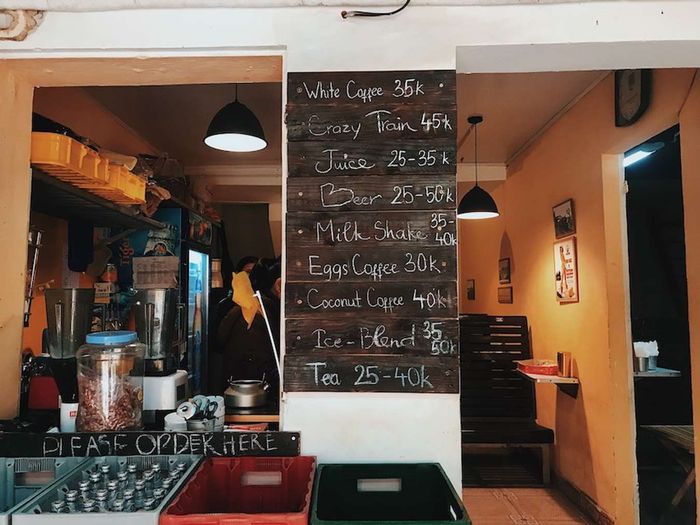 White Coffee 35k
Crazy Train 45k
Juice 25-35k
Beer 25-50k
Milk Shake 35-40k
Eggs Coffee 30k
Coconut Coffee 40k
Ice-Blend 35-50k
Tea 25-40k
PLEASE ORDER HERE